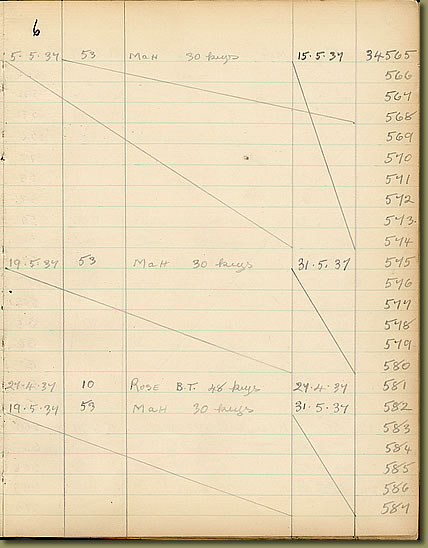 6
5.5.37 53 MAH 30 keys 15.5.37 34565
566
567
568
569
570
571
572
573
574
19.5.37 53 MAH 30 keys 31.5.37 575
576
577
578
579
580
27.4.37 10 ROSE B.T. 48 keys 27.4.37 581
19.5.37 53 MAH 30 keys 31.5.37 582
583
584
585
586
587